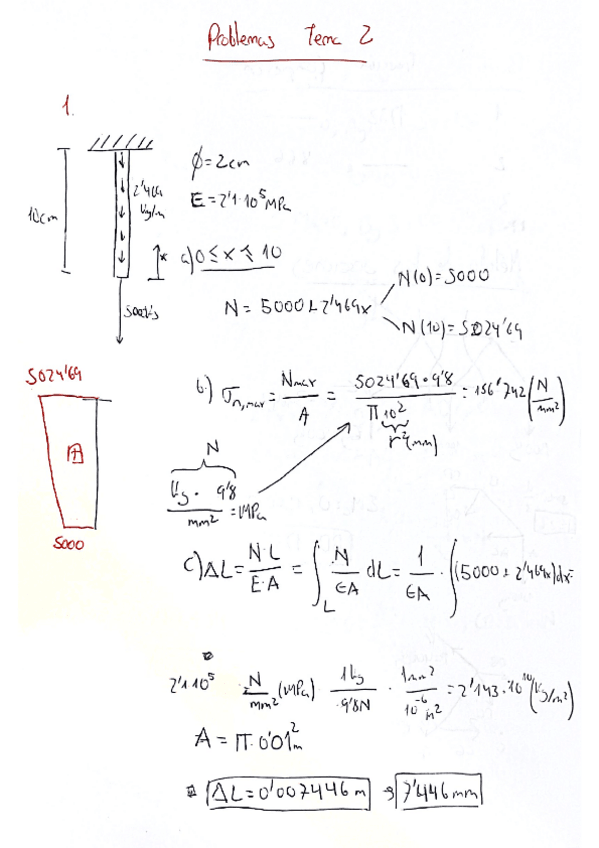 Problemas Tema 2
1.
2'469
kg/m
10cm
ϕ=2cm
E=2'1·10⁵MPa
x
a) 0≤x≤10
N(0)=5000
N = 5000+2'469x
N(10)=5024'69
5000kg
5024'69
b) σn,max = Nmax/A = 5024'69·9'8/π10² = 156'742 (N/mm²)
r²(mm)
N
kg · 9'8/mm² = MPa
5000
c) ΔL = N·L/E·A = ∫L N/EA dL = 1/EA · ∫(5000+2'469x)dx=
2'1·10⁵ N/mm² (MPa) 1kg/9'8N · 1mm²/10⁻⁶m² = 2'143·10¹⁰ (kg/m²)
A = π·0'01²m
ΔL=0'007446m → 7'446mm